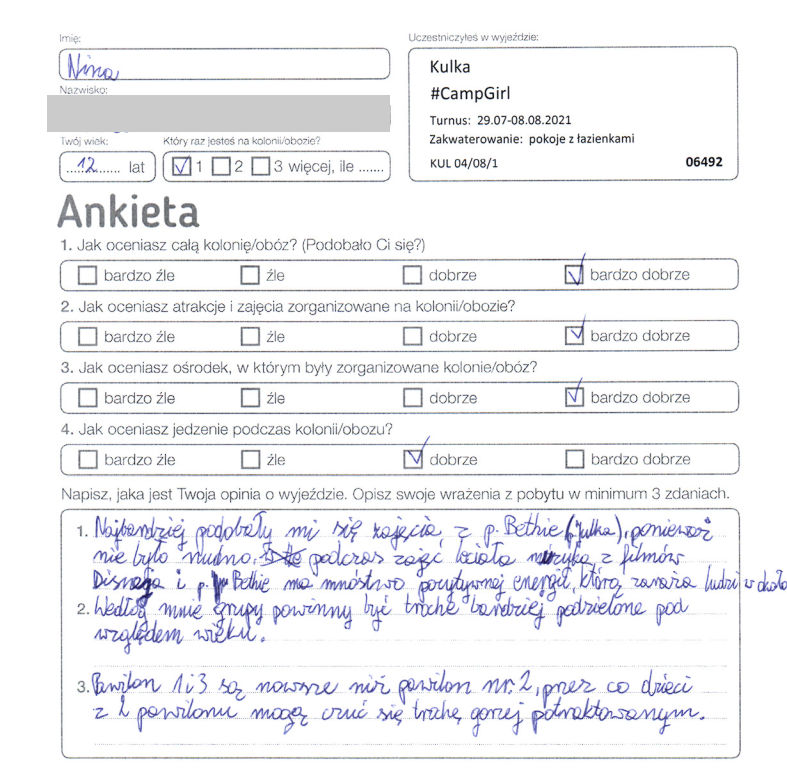 Imię:
Nina
Nazwisko:
Twój wiek:
Który raz jesteś na kolonii/obozie?
12 lat
1 2 3 więcej, ile .......
Uczestniczyłeś w wyjeździe:
Kulka
#CampGirl
Turnus: 29.07-08.08.2021
Zakwaterowanie: pokoje z łazienkami
KUL 04/08/1 06492
Ankieta
1. Jak oceniasz całą kolonię/obóz? (Podobało Ci się?)
bardzo źle źle dobrze bardzo dobrze
2. Jak oceniasz atrakcje i zajęcia zorganizowane na kolonii/obozie?
bardzo źle źle dobrze bardzo dobrze
3. Jak oceniasz ośrodek, w którym były zorganizowane kolonie/obóz?
bardzo źle źle dobrze bardzo dobrze
4. Jak oceniasz jedzenie podczas kolonii/obozu?
bardzo źle źle dobrze bardzo dobrze
Napisz, jaka jest Twoja opinia o wyjeździe. Opisz swoje wrażenia z pobytu w minimum 3 zdaniach.
1. Najbardziej podobały mi się zajęcia, z p. Bethie (p. Julka), ponieważ
nie było nudno, podczas zajęć leciała muzyka z filmów
Disneya i p. Bethie ma mnóstwo pozytywnej energii, którą zaraża ludzi w około
2. Według mnie grupy powinny być trochę bardziej podzielone pod
względem wieku.
3. Pawilon 1 i 3 są nowsze niż pawilon nr. 2, przez co dzieci
z 2 pawilonu mogą czuć się trochę gorzej potraktowanym.